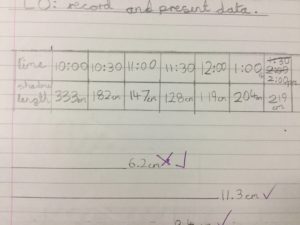 LO: record and present data.
time 10:00 10:30 11:00 11:30 12:00 1:00 2:00pm
shadow length 333cm 182cm 147cm 128cm 119cm 204cm 219 cm
6.2cm
11.3cm